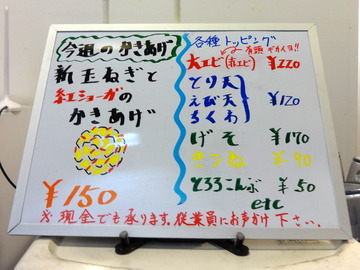 今週のかきあげ
新玉ねぎと
紅ショーガの
かきあげ
¥150
各種トッピング
有頭デカイヨ!!
大エビ(赤エビ) ¥220
とり天
えび天 ¥120
ちくわ
げそ ¥170
きつね ¥90
とろろこんぶ ¥50
etc
※現金でも承ります。従業員にお声かけ下さい。